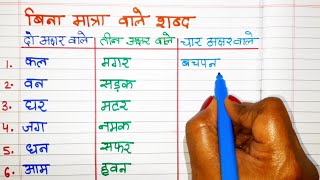 बिना मात्रा वाले शब्द
दो अक्षर वाले तीन अक्षर वाले चार अक्षर वाले
1. कल मगर बचपन
2. वन सड़क
3. घर मटर
4. जग नमक
5. धन सफर
6. आम हवन